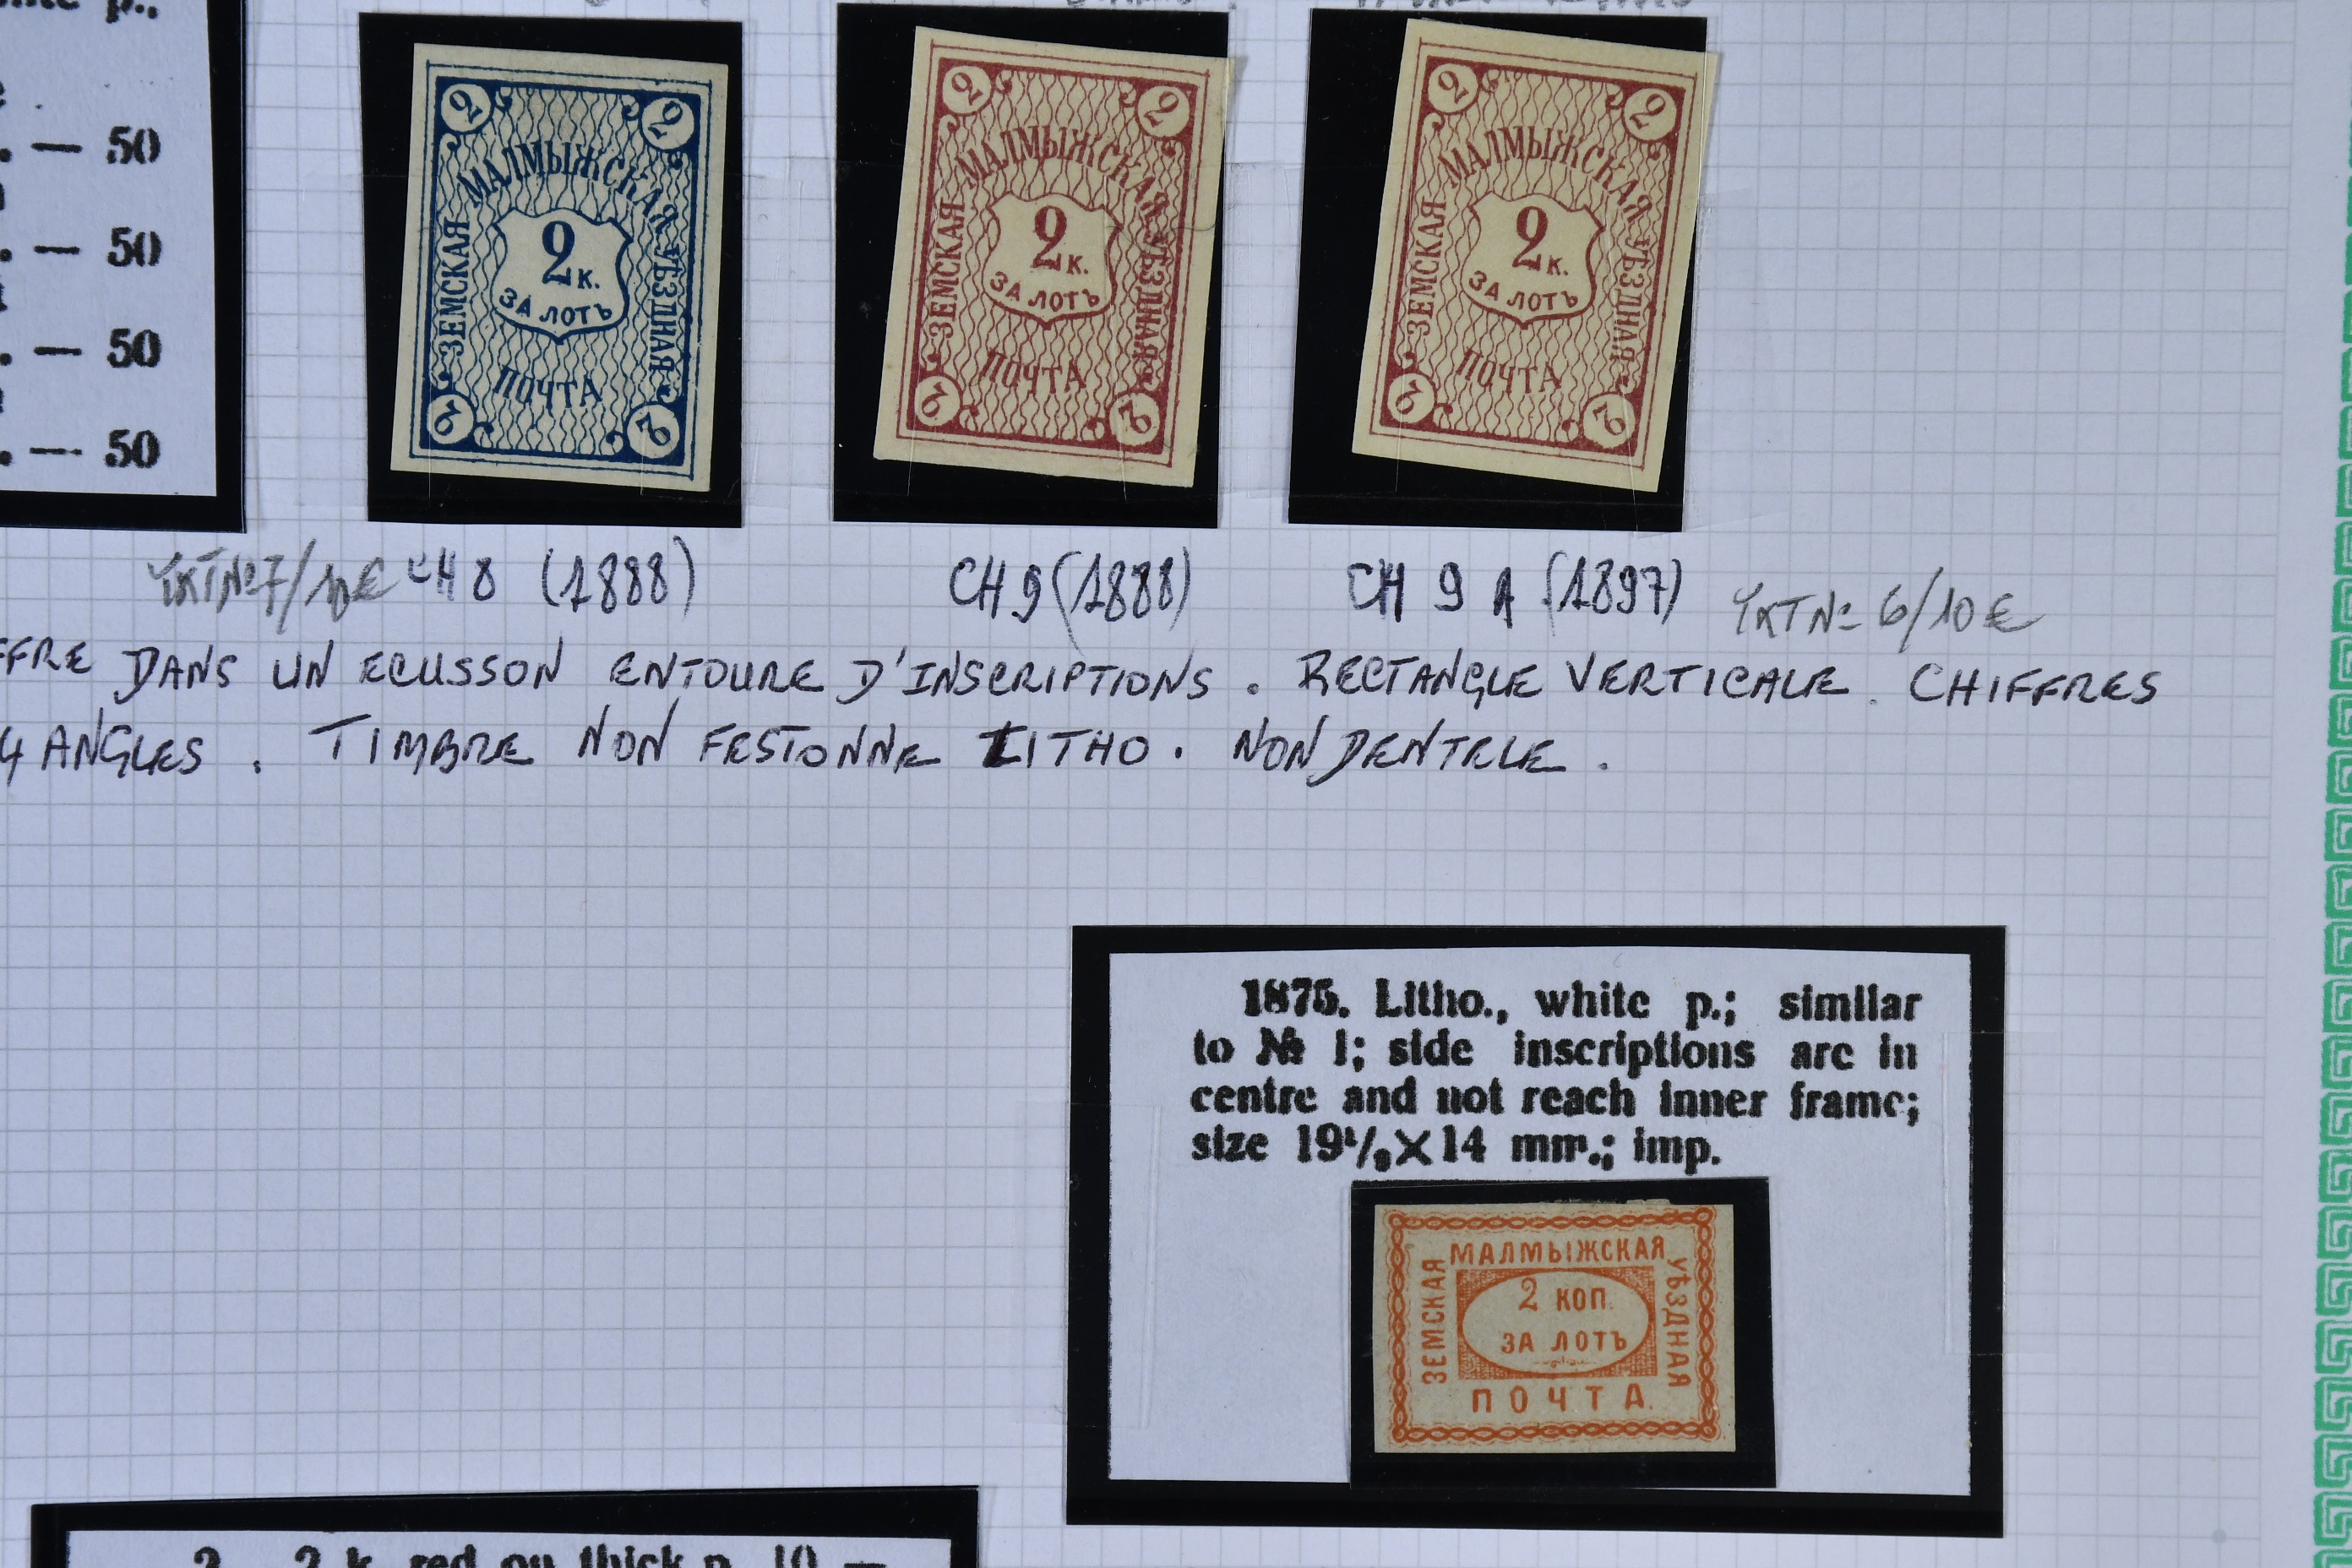 . — 50
. — 50
. — 50
. — 50
2 2
МАЛМЫЖСКАЯ
ЗЕМСКАЯ
УѢЗДНАЯ
2 К.
ЗА ЛОТЪ
ПОЧТА
2 2
2 2
МАЛМЫЖСКАЯ
ЗЕМСКАЯ
УѢЗДНАЯ
2 К.
ЗА ЛОТЪ
ПОЧТА
2 2
2 2
МАЛМЫЖСКАЯ
ЗЕМСКАЯ
УѢЗДНАЯ
2 К.
ЗА ЛОТЪ
ПОЧТА
2 2
YXT Nº 7/10€ CH 8 (1888) CH 9 (1888) CH 9 A (1897) YXT Nº 6/10€
FFRE DANS UN ECUSSON ENTOURE D'INSCRIPTIONS . RECTANGLE VERTICALE . CHIFFRES
4 ANGLES . TIMBRE NON FESTONNE LITHO . NON DENTELE .
1875. Litho., white p.; similar
to № 1; side inscriptions are in
centre and not reach inner frame;
size 19½×14 mm.; imp.
МАЛМЫЖСКАЯ
ЗЕМСКАЯ
УѢЗДНАЯ
2 КОП.
ЗА ЛОТЪ
ПОЧТА.
2 k. red on thick p. 10 —